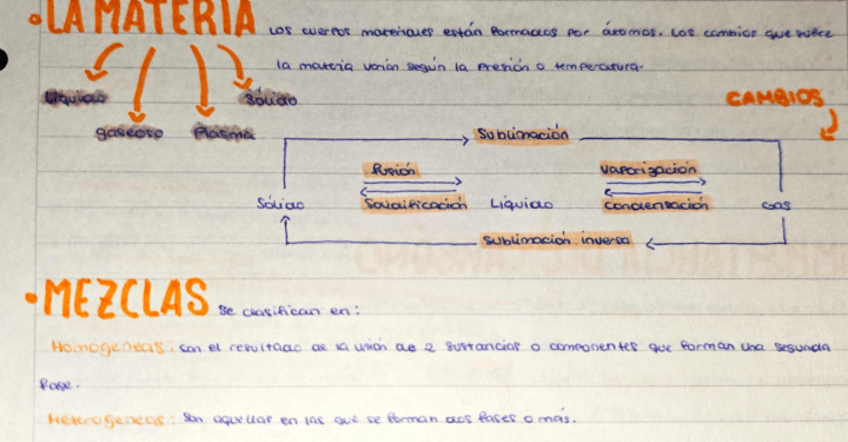 • LA MATERIA Los cuerpos materiales están formados por átomos. Los cambios que sufre
la materia varían según la presión o temperatura.
Líquido Sólido CAMBIOS
gaseoso Plasma Sublimación
fusión vaporización
Sólido Solidificación Líquido condensación Gas
Sublimación inversa
• MEZCLAS se clasifican en:
Homogeneas: son el resultado de la unión de 2 sustancias o componentes que forman una segunda
fase.
Heterogeneas: Son aquellas en las que se forman dos fases o más.